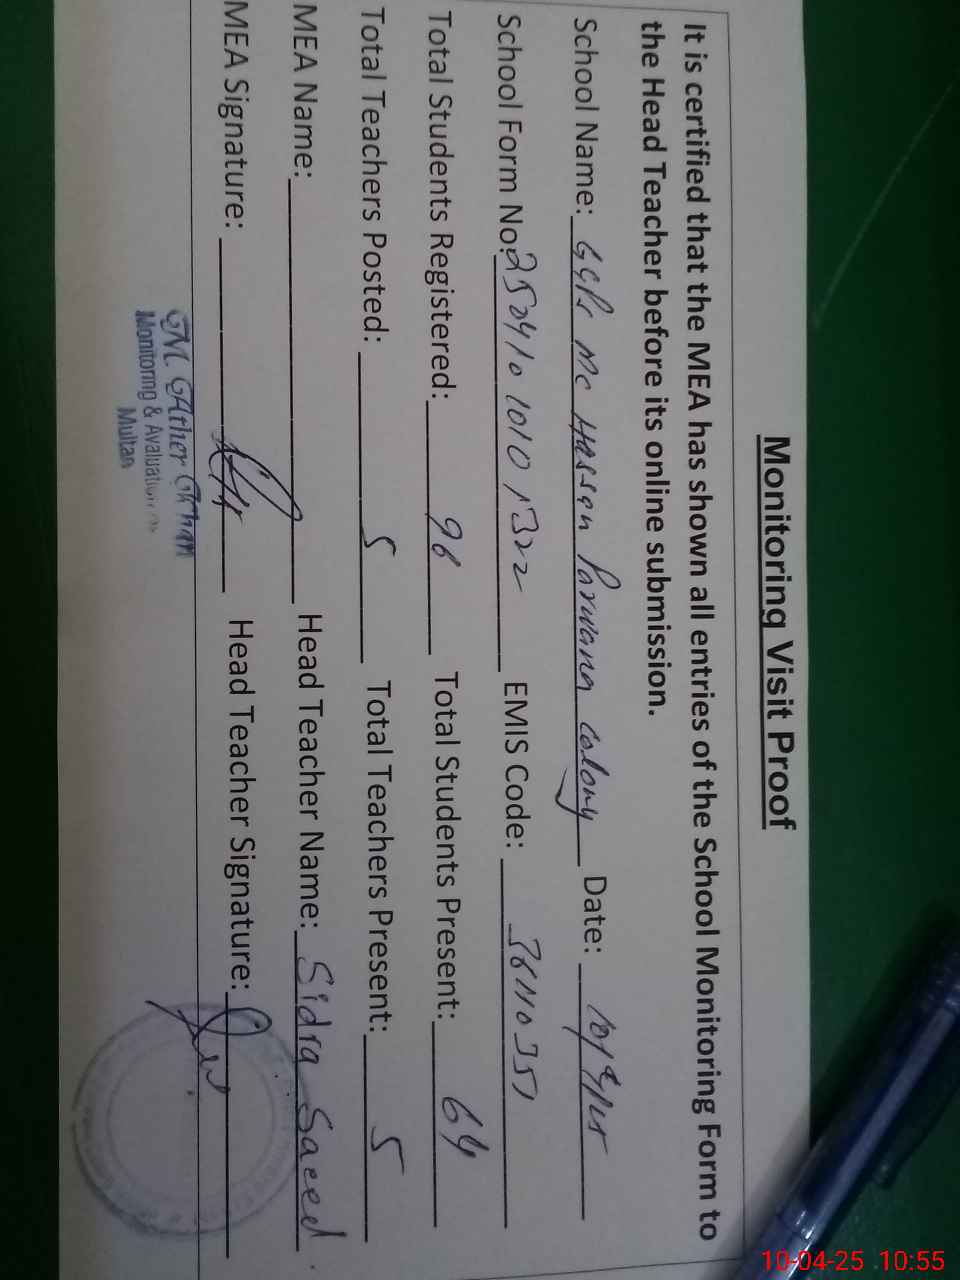 Monitoring Visit Proof
It is certified that the MEA has shown all entries of the School Monitoring Form to
the Head Teacher before its online submission.
School Name: GGPS MC Hassan Parwana colony Date: 10/4/25
School Form No: 25041010101322 EMIS Code: 36110351
Total Students Registered: 96 Total Students Present: 64
Total Teachers Posted: 5 Total Teachers Present: 5
MEA Name: Head Teacher Name: Sidra Saeed
MEA Signature: Head Teacher Signature:
M. Ather
Monitoring & Avaluation
Multan
10-04-25 10:55